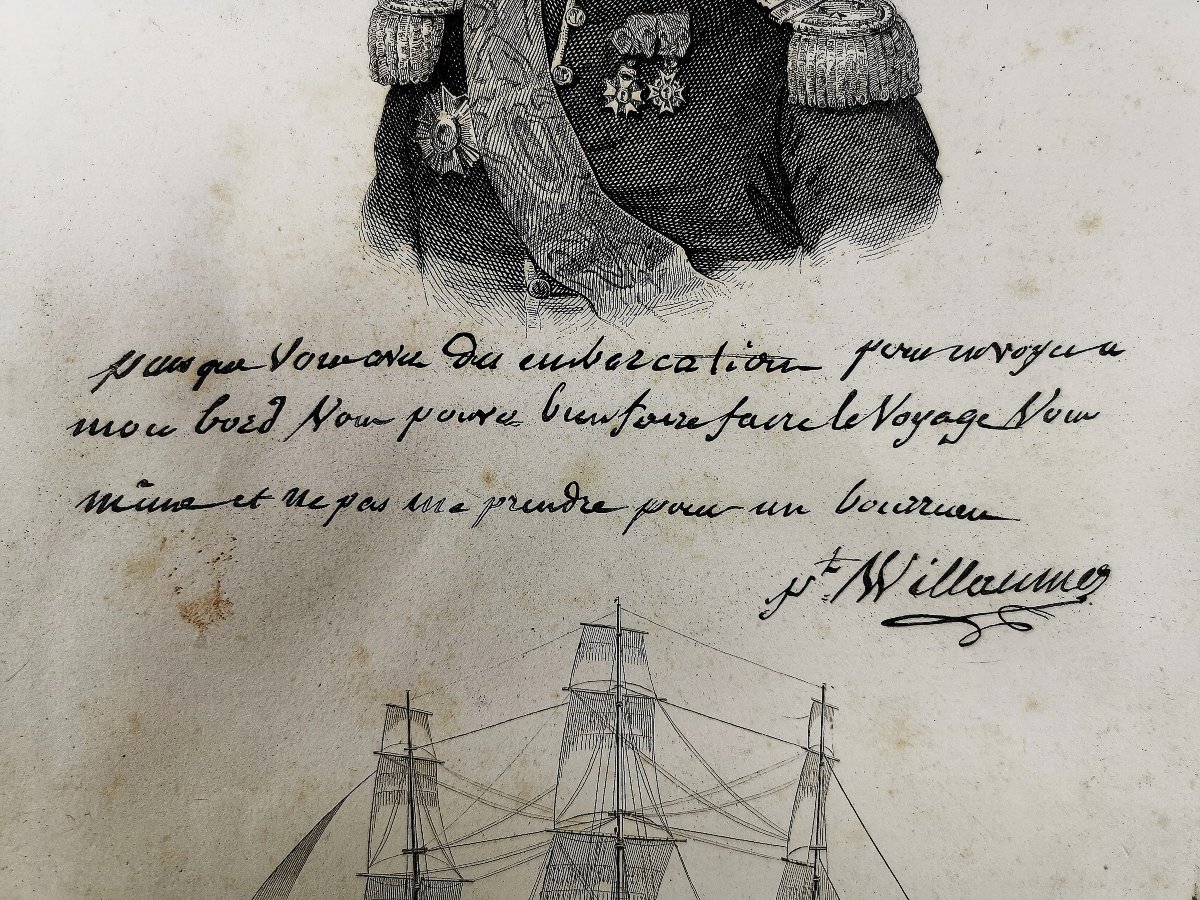 puisque Vous avez des embarcations pour envoyer a
mon bord Vous pouvez bien faire faire le Voyage Vous
même et ne pas me prendre pour un bourreau
pt. Willaumez